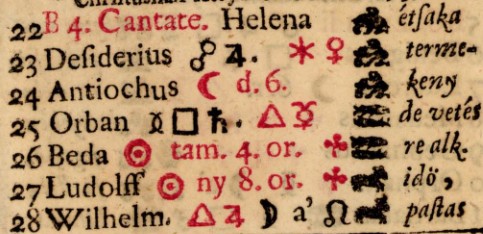 22 B 4. Cantate. Helena étſaka
23 Deſiderius ☍ ♃. ✶ ♀ terme-
24 Antiochus ☾ d. 6. keny
25 Orban □ ♄. △ ☿ de vetés
26 Beda ☉ tam. 4. or. re alk.
27 Ludolff ☉ ny 8. or. idö,
28 Wilhelm. △ ♃ ☽ a' ☊ paſtas